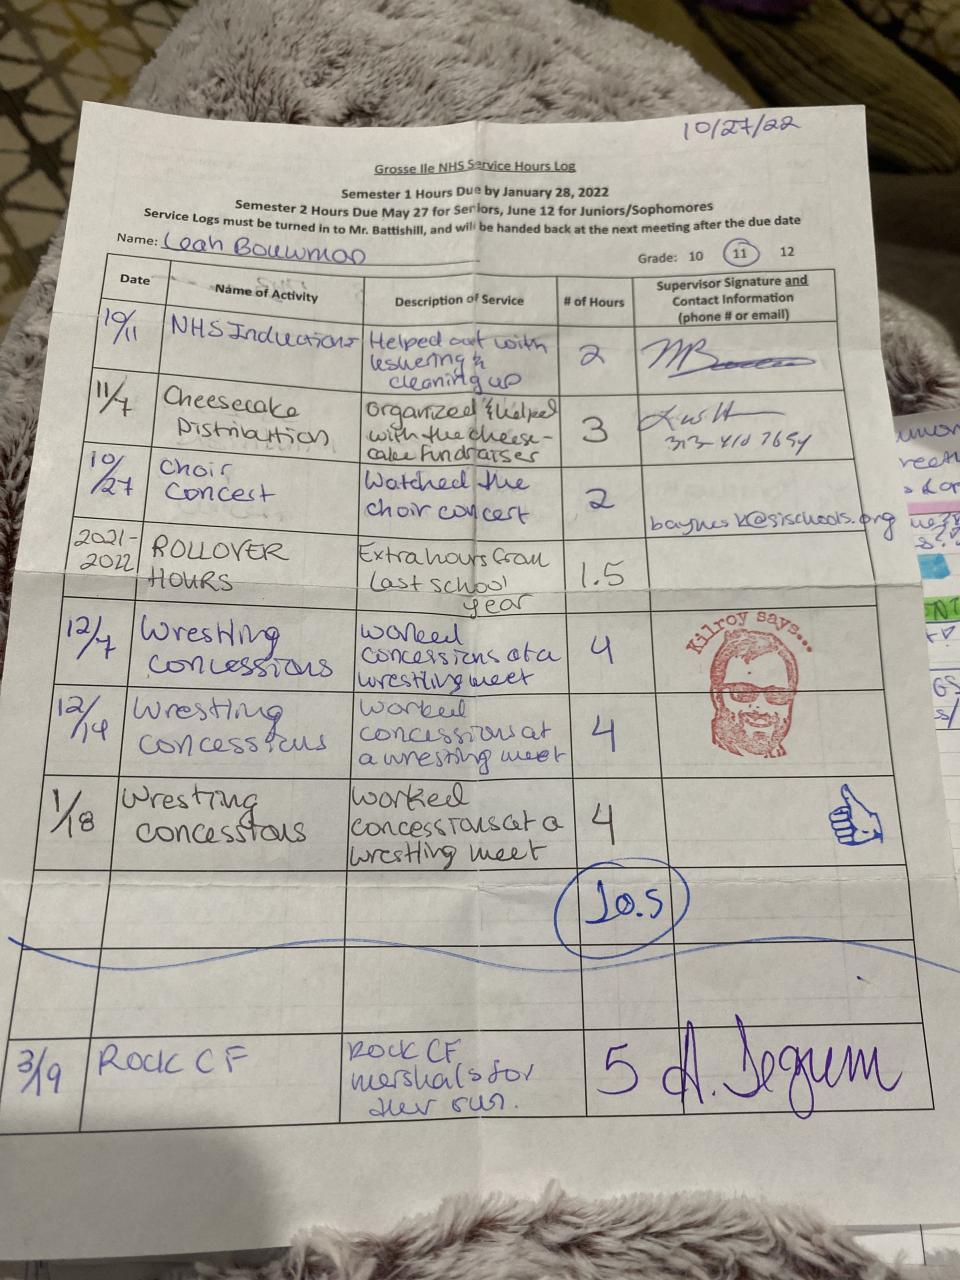 10/27/22
Grosse Ile NHS Service Hours Log
Semester 1 Hours Due by January 28, 2022
Semester 2 Hours Due May 27 for Seniors, June 12 for Juniors/Sophomores
Service Logs must be turned in to Mr. Battishill, and will be handed back at the next meeting after the due date
Name: Leah Bouwman
Grade: 10 11 12
Date
Name of Activity
Description of Service
# of Hours
Supervisor Signature and
Contact Information
(phone # or email)
10/11
NHS Inductions
Helped out with
ushering &
cleaning up
2
11/7
Cheesecake
Distribution
organized & helped
with the cheese-
cake fundraiser
3
313-410 7654
10/27
Choir
Concert
Watched the
choir concert
2
baynesk@gischools.org
2021-
2022
ROLLOVER
HOURS
Extra hours from
last school
year
1.5
12/7
Wrestling
concessions
worked
concessions at a
wrestling meet
4
Kilroy says...
12/14
Wrestling
concessions
Worked
concessions at
a wrestling meet
4
1/18
Wresting
concessions
Worked
concessions at a
wrestling meet
4
20.5
3/19
ROCK CF
ROCK CF
mershals for
their run.
5
A. Segum